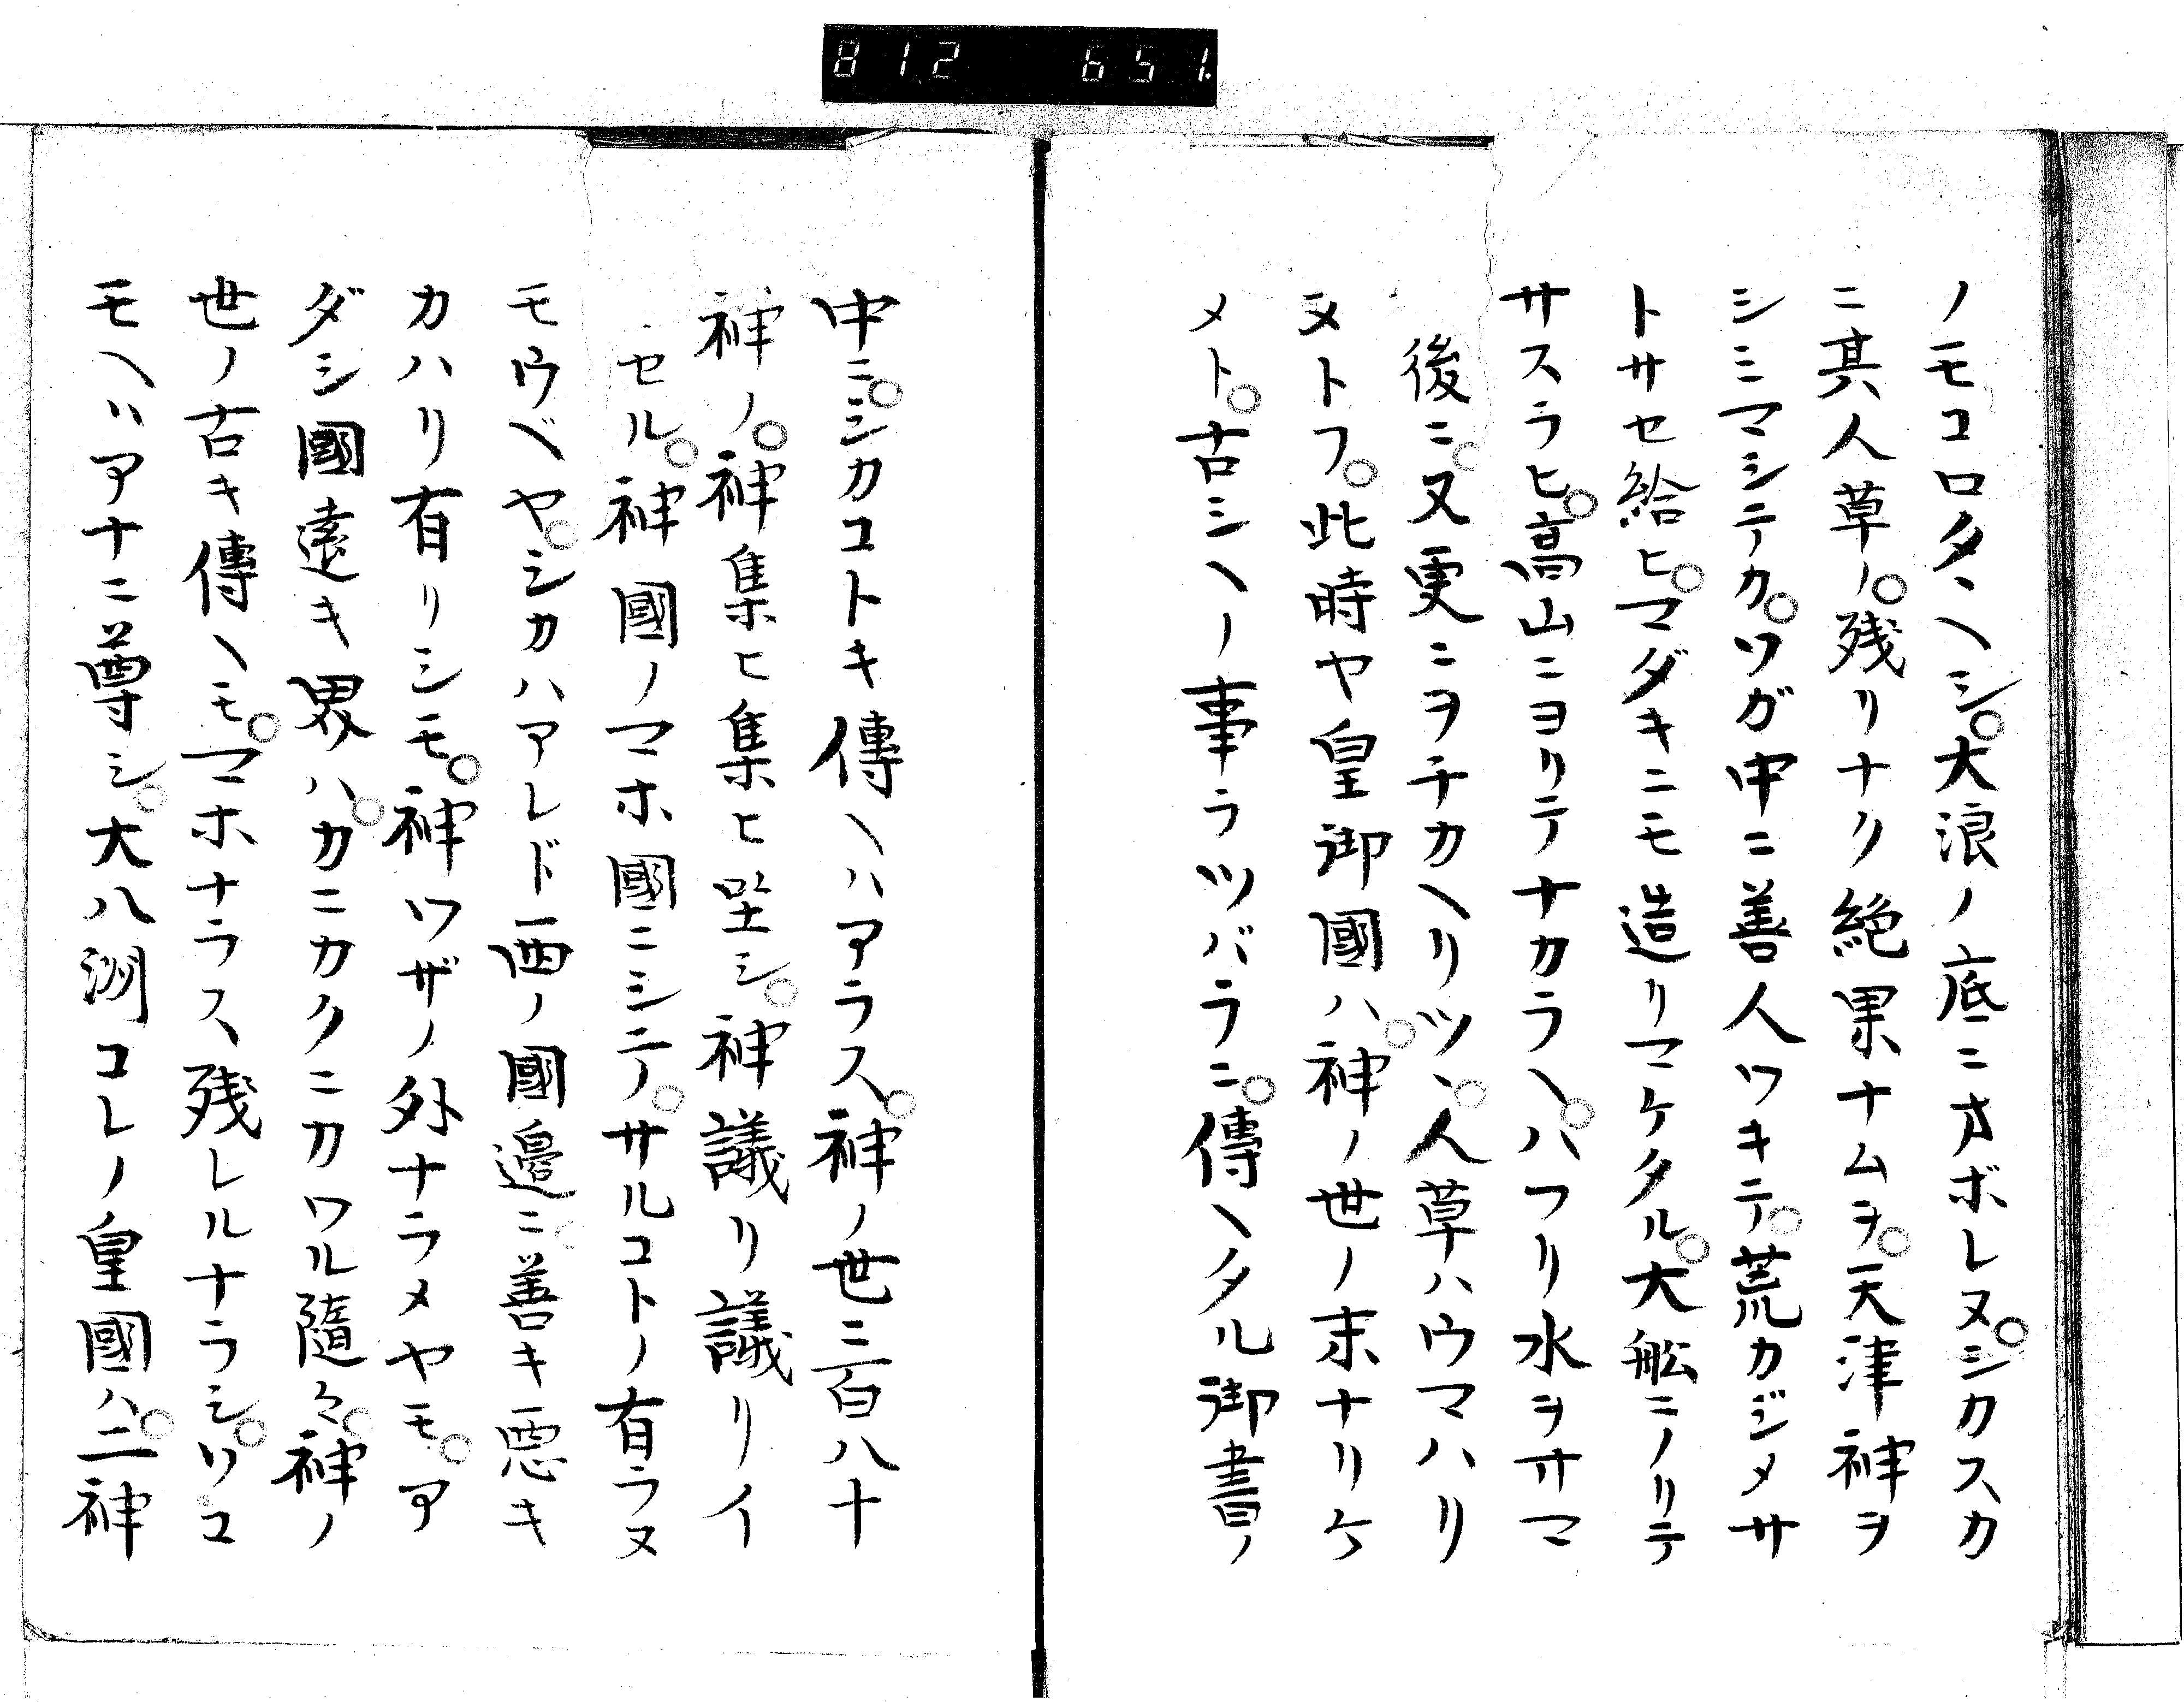 812 651.
ノモコロタヽヘシ。大浪ノ底ニオボレヌ。シカスカ
ニ其人草ノ。残リナク絶果ナムヲ。天津神ヲ
シミマシテカ。ワガ中ニ善人ワキテ。荒カジメサ
トサセ給ヒ。マダキニモ造リマケタル。大舩ニノリテ
サスラヒ。高山ニヨリテナカラヘ。ハフリ水ヲサマ
後ニ。又更ニヲチカヘリツヽ。人草ハウマハリ
ヌトフ。此時ヤ皇御國ハ。神ノ世ノ末ナリケ
メト。古シヘノ事ラツバラニ。傳ヘタル御書ノ
中ニ。シカコトキ傳ヘハアラス。神ノ世ニ百八十
神ノ。神集ヒ集ヒ坐シ。神議リ議リイ
セル。神國ノマホ國ニシテ。サルコトノ有ラヌ
モウベヤ。シカハアレド西ノ國邊ニ。善キ悪キ
カハリ有リシモ。神ワザノ外ナラメヤモ。ア
ダシ國遠キ界ハ。カニカクニカワル隨々。神ノ
世ノ古キ傳ヘモ。マホナラス残レルナラシ。ソコ
モヘハアナニ尊シ。大八洲コレノ皇國ハ。二神